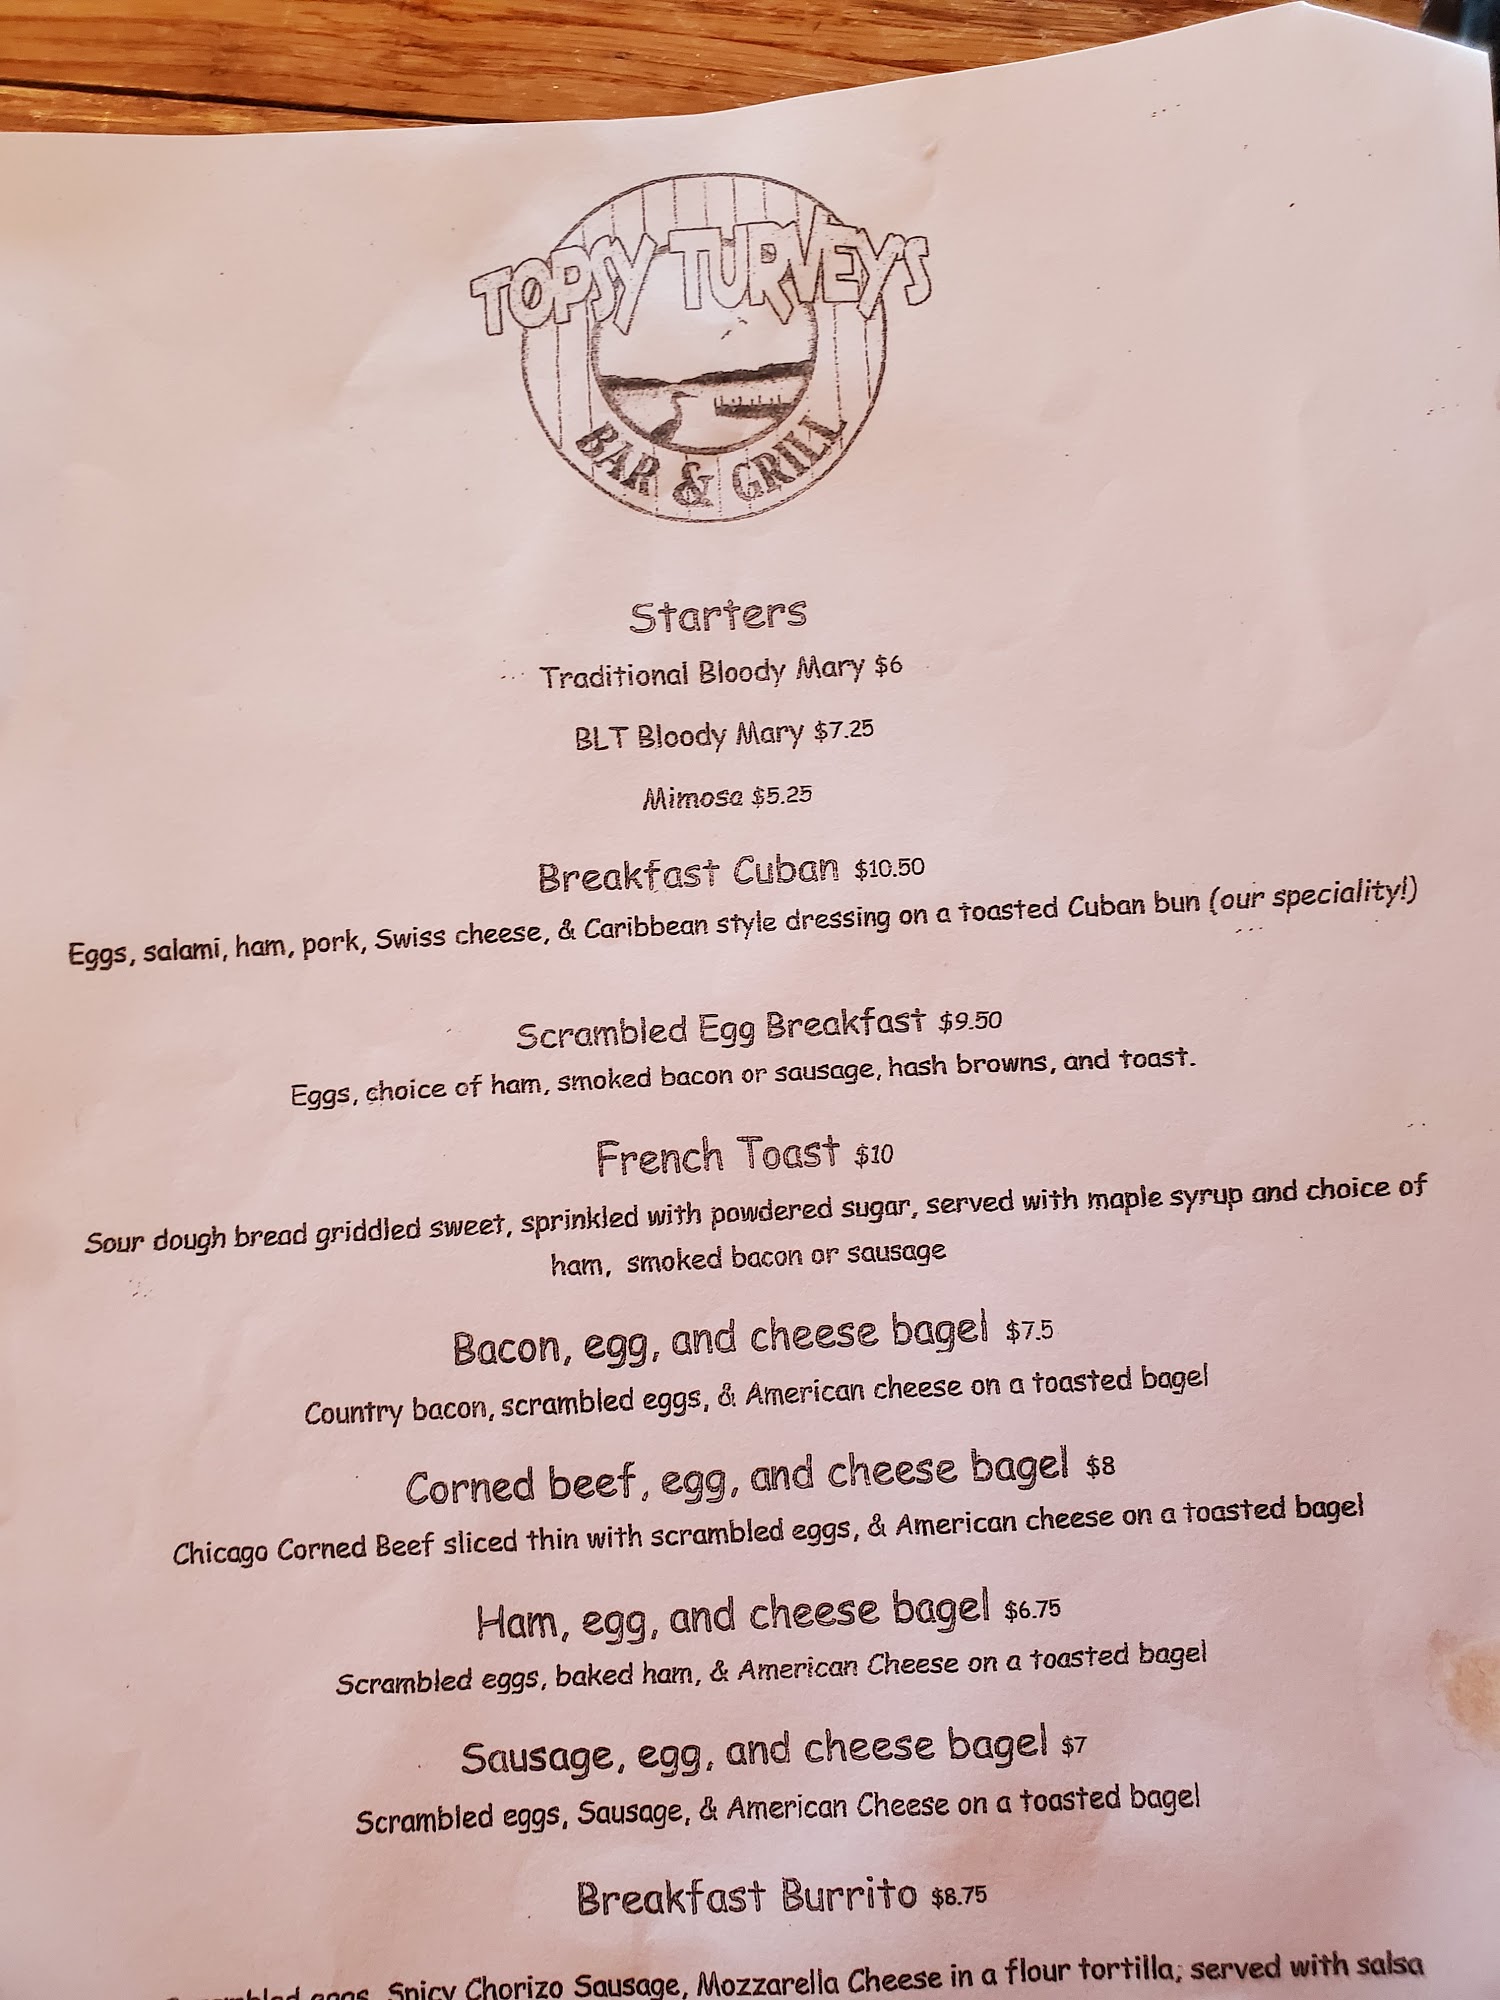 TOPSY TURVEY'S
BAR & GRILL
Starters
Traditional Bloody Mary $6
BLT Bloody Mary $7.25
Mimosa $5.25
Breakfast Cuban $10.50
Eggs, salami, ham, pork, Swiss cheese, & Caribbean style dressing on a toasted Cuban bun (our speciality!)
Scrambled Egg Breakfast $9.50
Eggs, choice of ham, smoked bacon or sausage, hash browns, and toast.
French Toast $10
Sour dough bread griddled sweet, sprinkled with powdered sugar, served with maple syrup and choice of
ham, smoked bacon or sausage
Bacon, egg, and cheese bagel $7.5
Country bacon, scrambled eggs, & American cheese on a toasted bagel
Corned beef, egg, and cheese bagel $8
Chicago Corned Beef sliced thin with scrambled eggs, & American cheese on a toasted bagel
Ham, egg, and cheese bagel $6.75
Scrambled eggs, baked ham, & American Cheese on a toasted bagel
Sausage, egg, and cheese bagel $7
Scrambled eggs, Sausage, & American Cheese on a toasted bagel
Breakfast Burrito $8.75
Scrambled eggs, Spicy Chorizo Sausage, Mozzarella Cheese in a flour tortilla, served with salsa